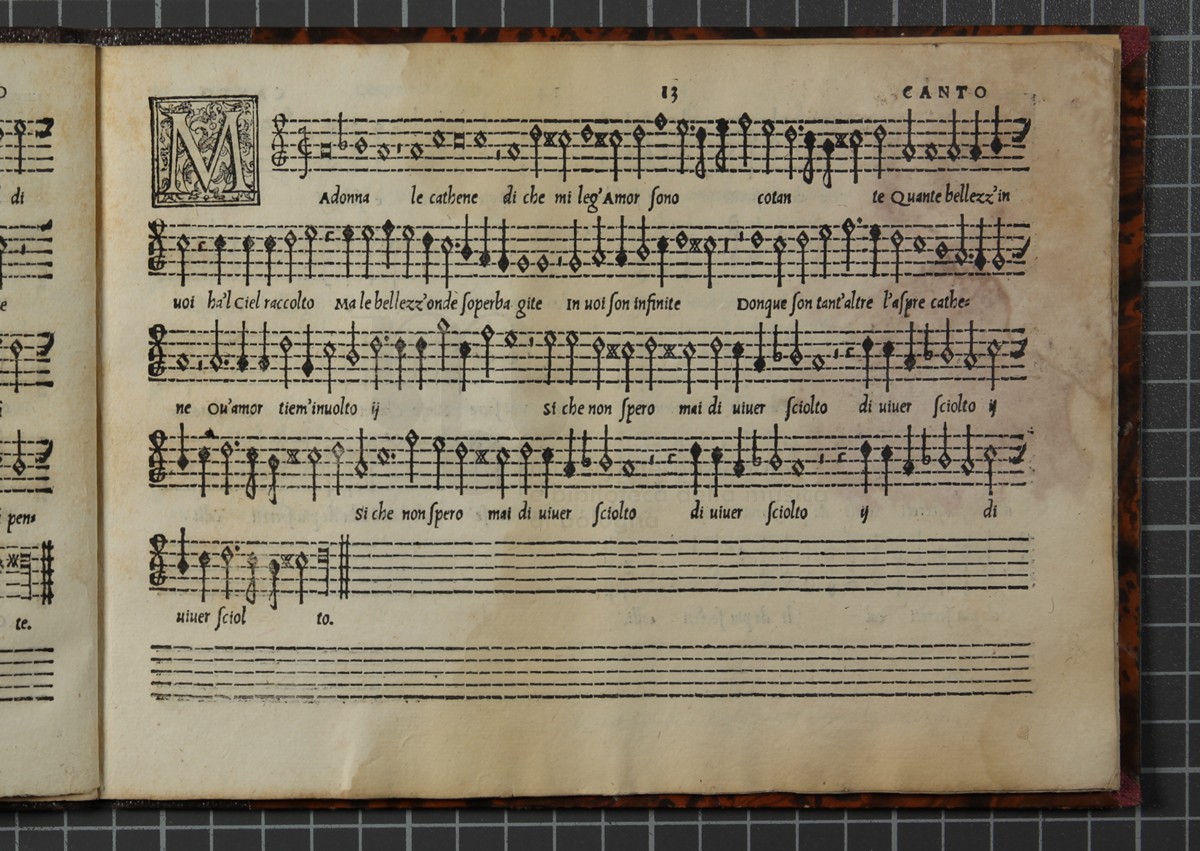 13 CANTO
MAdonna le cathene di che mi leg' Amor sono cotan te Quante bellezz'in
uoi ha'l Ciel raccolto Ma le bellezz'onde soperba gite In uoi son infinite Donque son tant'altre l'aspre cathe=
ne Ou'amor tiem'inuolto ij Si che non spero mai di uiuer sciolto di uiuer sciolto ij
Si che non spero mai di uiuer sciolto di uiuer sciolto ij di
uiuer sciol to.
di
e
i pen=
te.